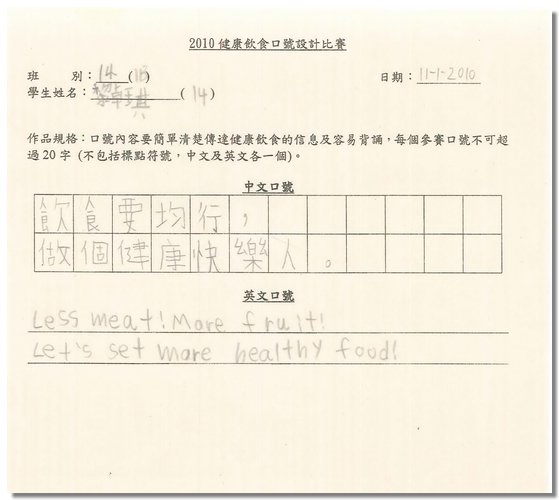 2010 健康飲食口號設計比賽
班 別：14 (1B)
日期：11-1-2010
學生姓名：黎卓琪 (14)
作品規格：口號內容要簡單清楚傳達健康飲食的信息及容易背誦，每個參賽口號不可超
過 20 字 (不包括標點符號，中文及英文各一個)。
中文口號
飲食要均行，
做個健康快樂人。
英文口號
Less meat! More fruit!
Let's set more healthy food!